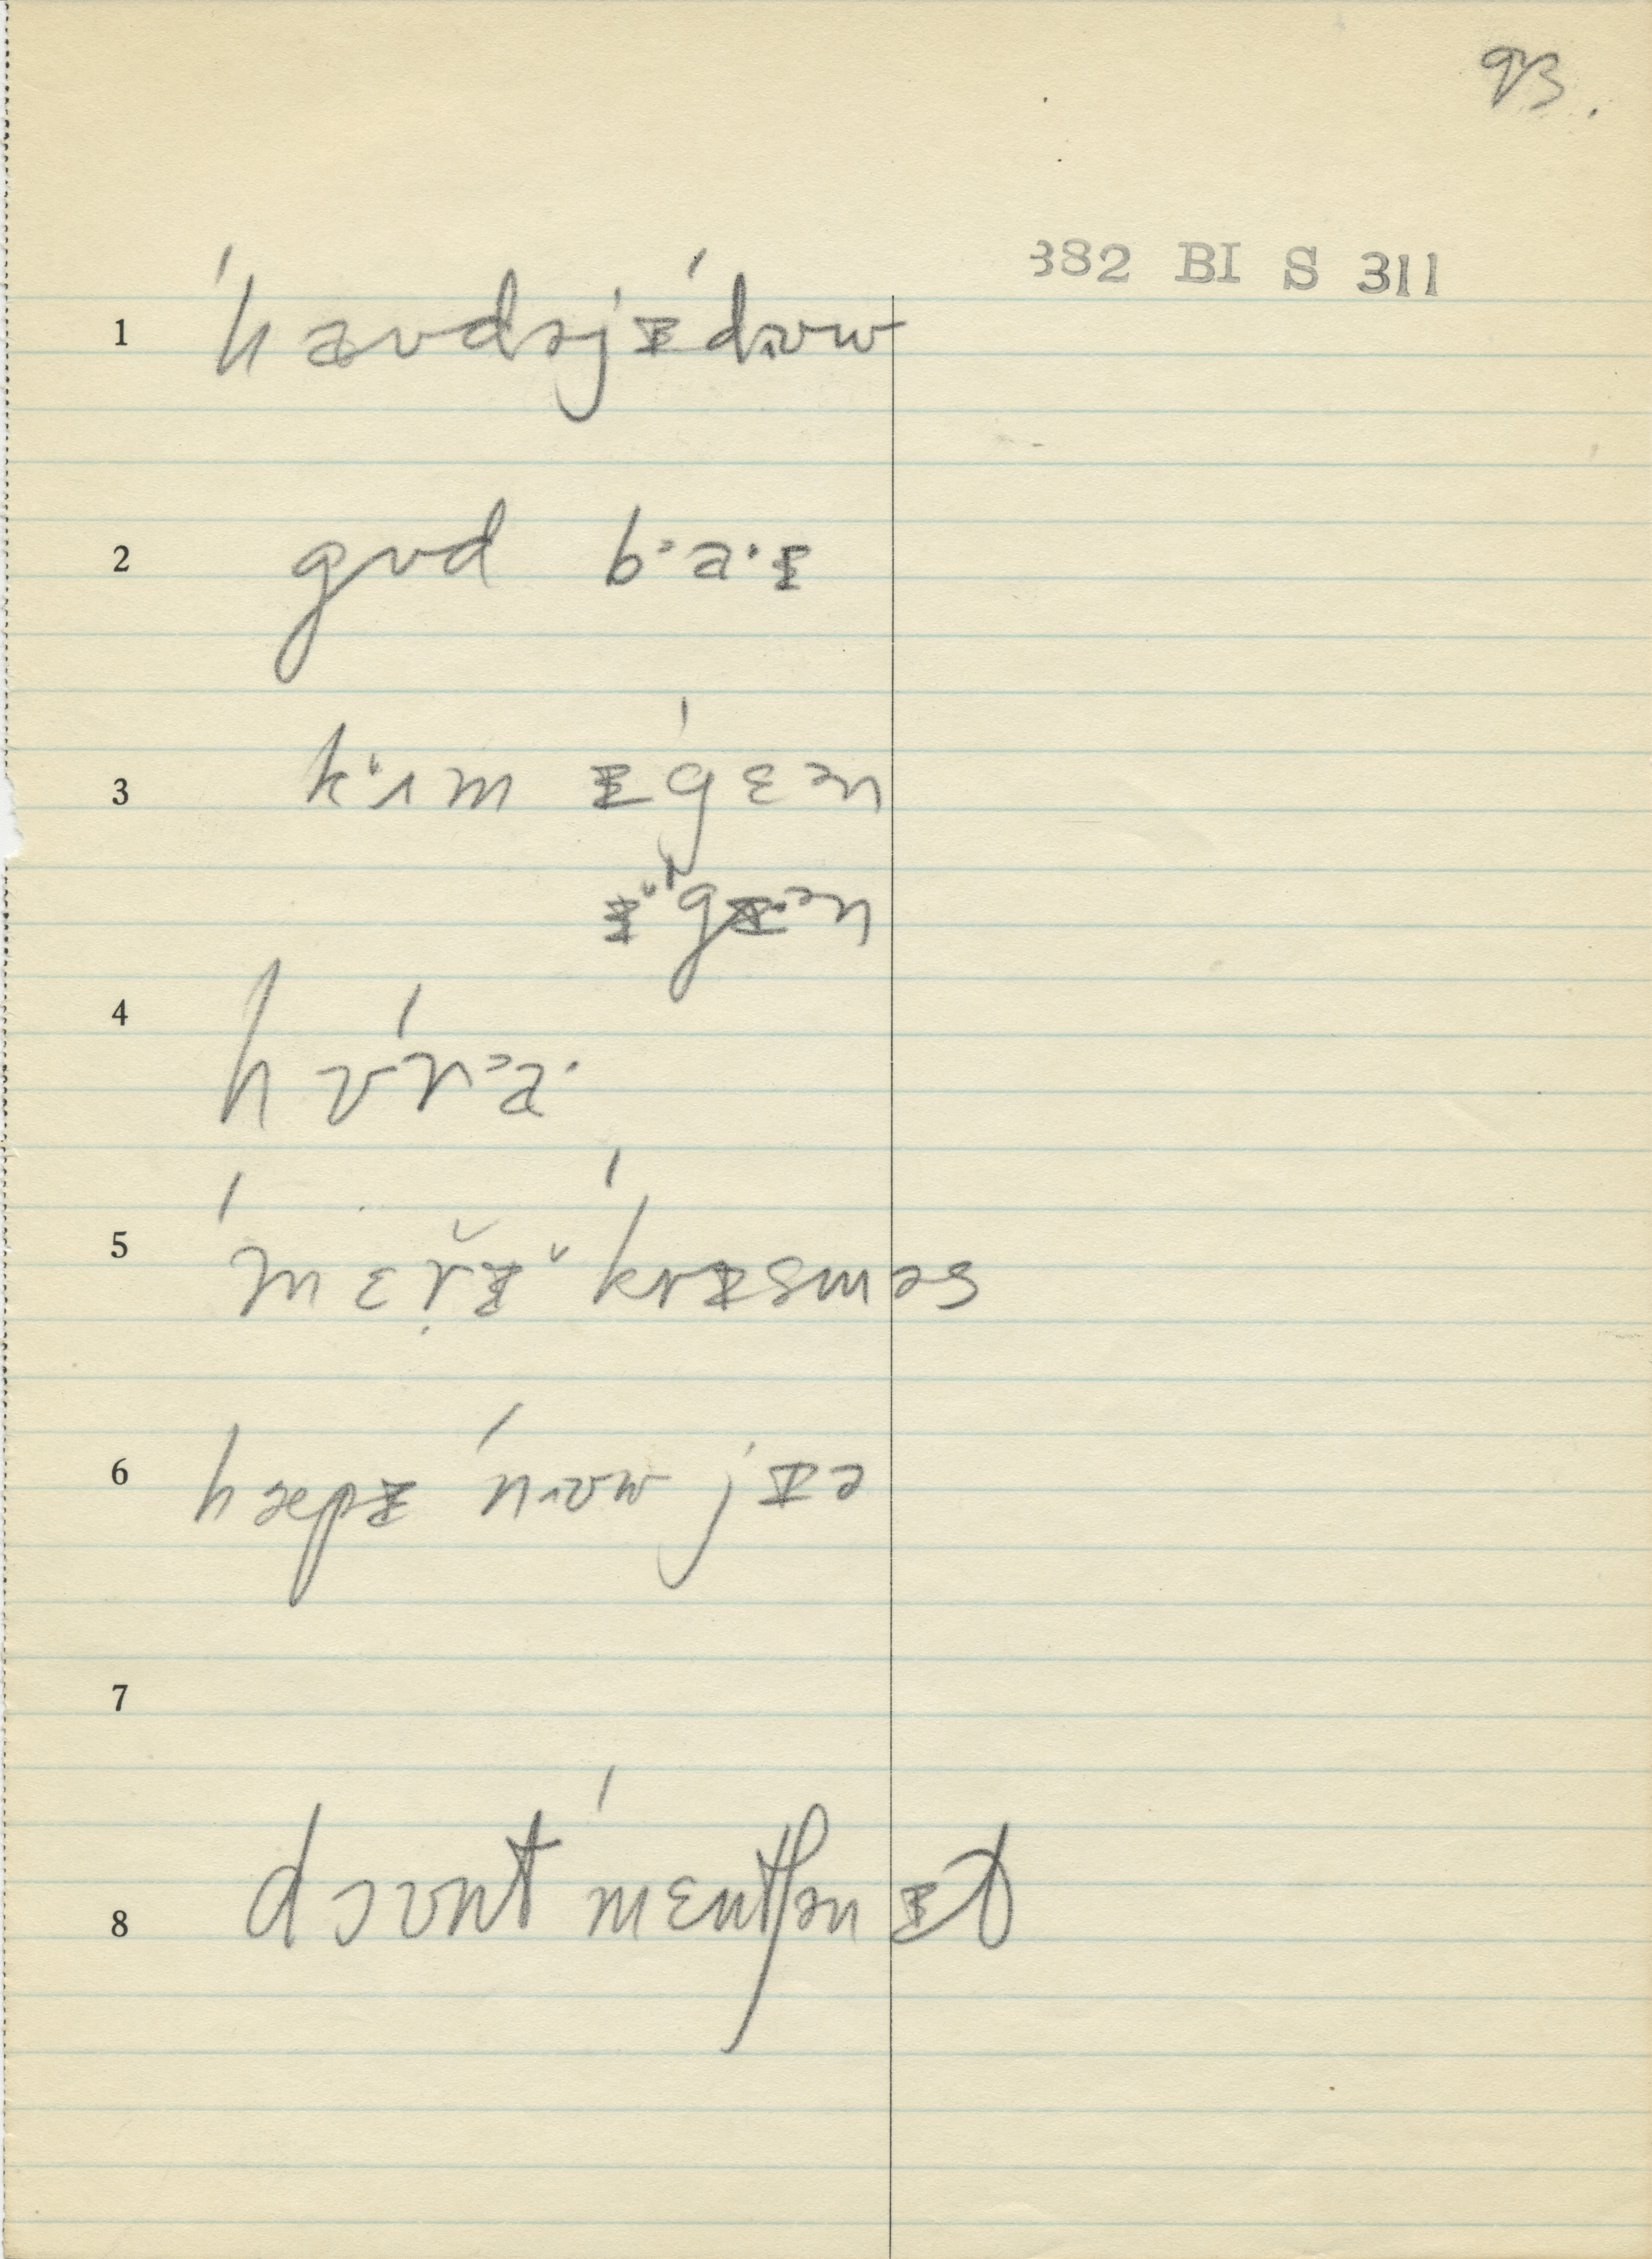 93.
382 BI S 311
1 ˈhaʊdəjᵻˈdɪʊw
2 gʊd bˑaˑᵻ
3 kʌm ᵻˈgɛən
ᵻˈgᵻən
4 hʊˈrˑaˑ
5 ˈmɛřᵻ ˈkrᵻsməs
6 hæpᵻ ˈnɪʊw jᵻə
7
8 doʊnt ˈmɛntʃən ᵻt